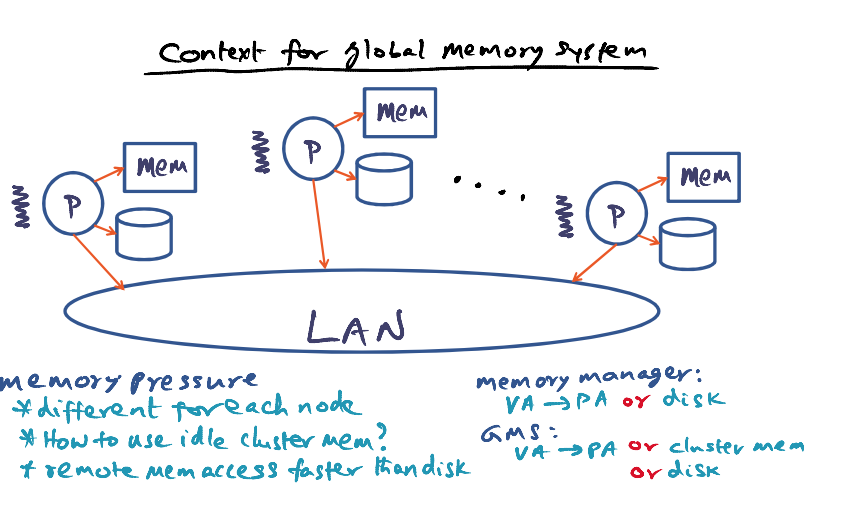 Context for global memory system
mem
mem
mem
P
P
P
LAN
memory pressure
* different for each node
* How to use idle cluster mem?
+ remote mem access faster than disk
memory manager:
VA → PA or disk
GMS:
VA → PA or cluster mem
or disk